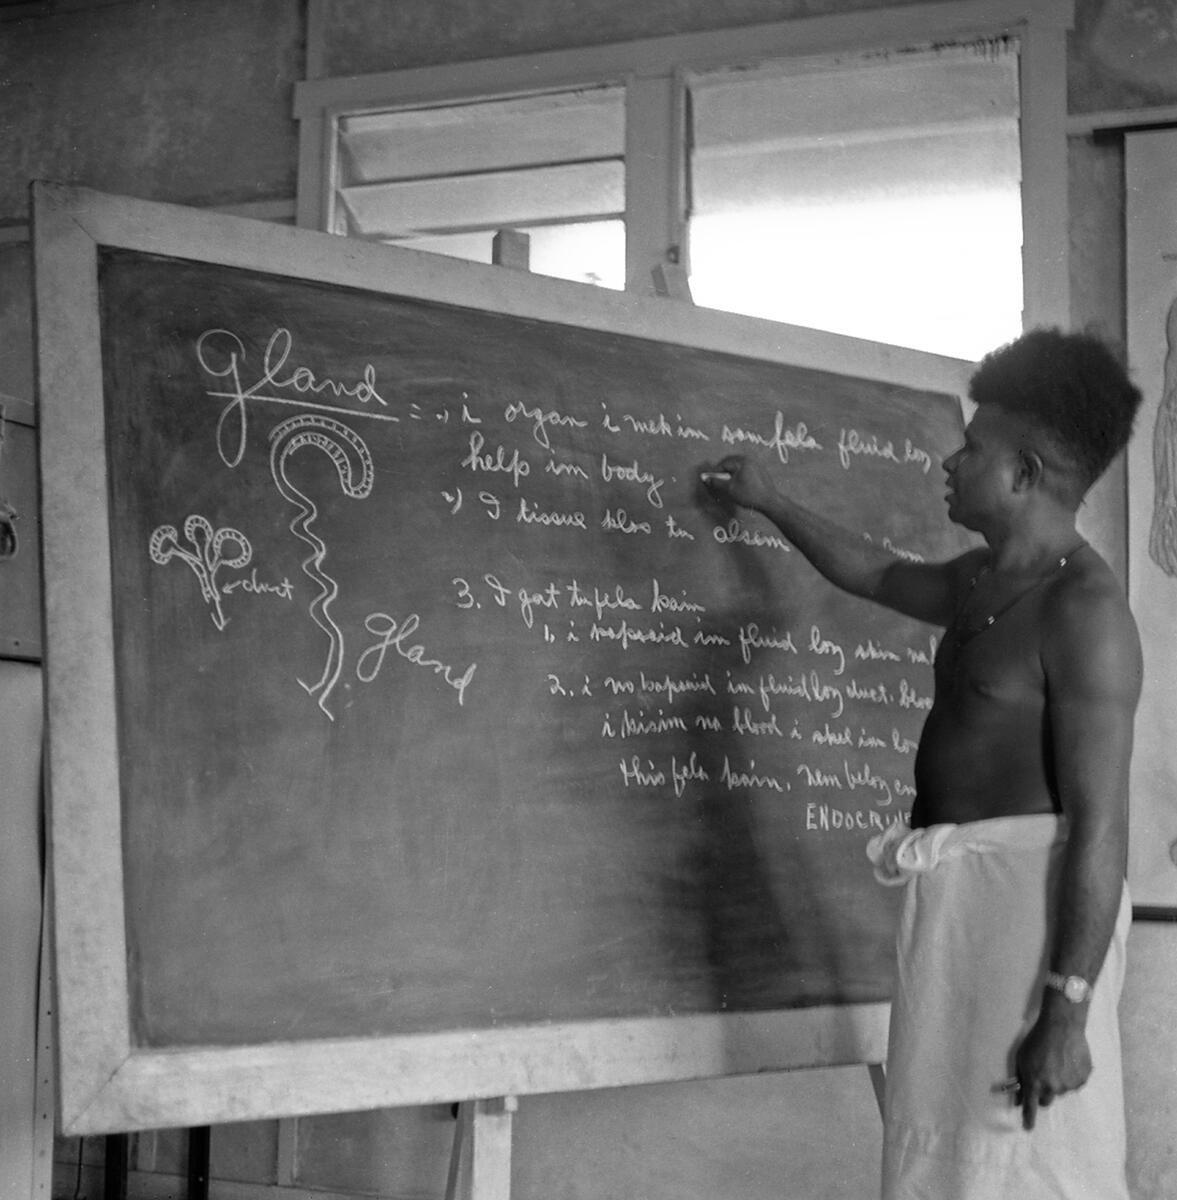 gland = 1) i organ i mekim somfela fluid long
help im body.
2) I tissue klos tu olsem
duct
3. I got tufela kain
1. i kapsaid im fluid long skin na
gland
2. i no kapsaid im fluid long duct. bloo
i kisim na blood i skel im lo
this fela kain, nem belong en
ENDOCRINE